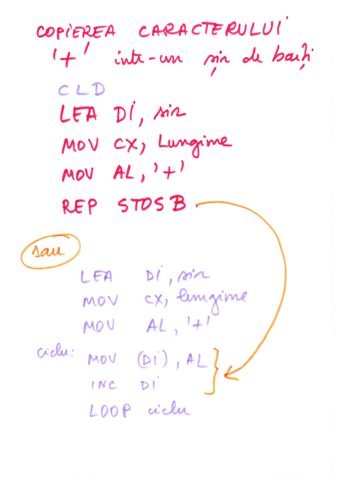 COPIEREA CARACTERULUI
'+' într-un șir de baiți
CLD
LEA DI, sir
MOV CX, Lungime
MOV AL, '+'
REP STOSB
sau
LEA DI, sir
MOV CX, lungime
MOV AL, '+'
ciclu: MOV (DI), AL
INC DI
LOOP ciclu